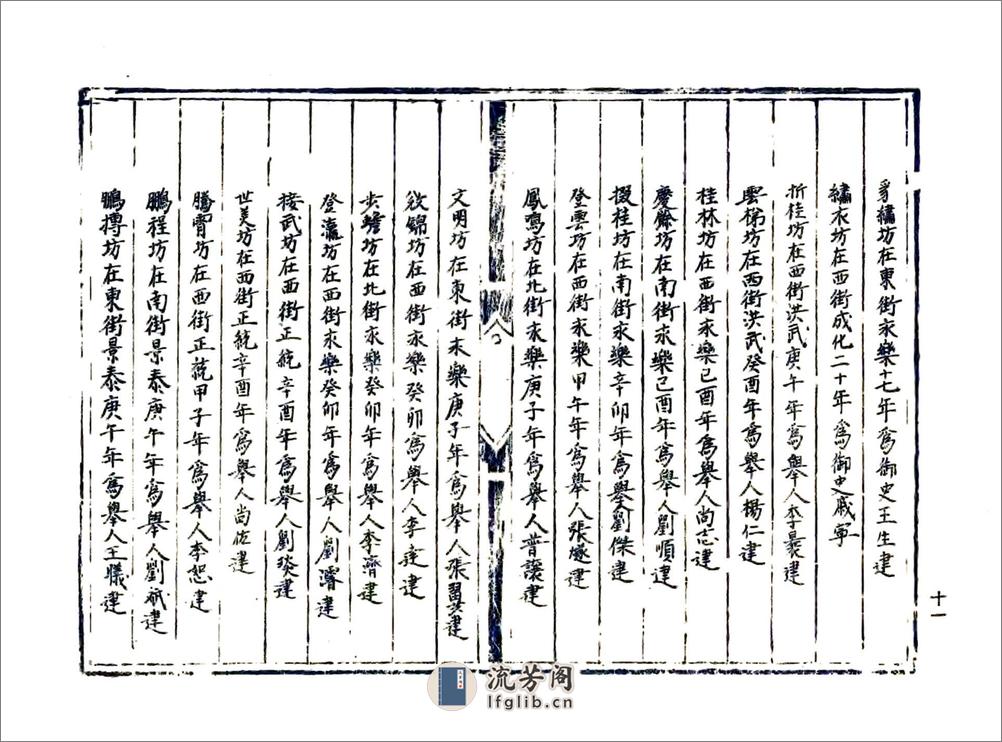 豸繡坊在東街永樂十七年爲御史王生建
繡衣坊在西街成化二十年爲御史戚寧
折桂坊在西街洪武庚午年爲舉人李晸建
雲梯坊在西街洪武癸酉年爲舉人楊仁建
桂林坊在西街永樂己酉年爲舉人尚志建
慶餘坊在南街永樂己酉年爲舉人劉順建
掇桂坊在南街永樂辛卯年爲舉劉傑建
登雲坊在西街永樂甲午年爲舉人張燧建
鳳鳴坊在北街永樂庚子年爲舉人普讓建
文明坊在東街永樂庚子年爲舉人張翼建
坊在西街永樂癸卯爲舉人李達建
步蟾坊在北街永樂癸卯年爲舉人李濟建
登瀛坊在西街永樂癸卯年爲舉人劉濬建
接武坊在西街正統辛酉年爲舉人劉琰建
世美坊在西街正統辛酉年爲舉人尚佐建
騰霄坊在西街正統甲子年爲舉人李恕建
鵬程坊在南街景泰庚午年爲舉人劉建
鵬摶坊在東街景泰庚午年爲舉人王建
十一
流芳阁
lfglib.cn